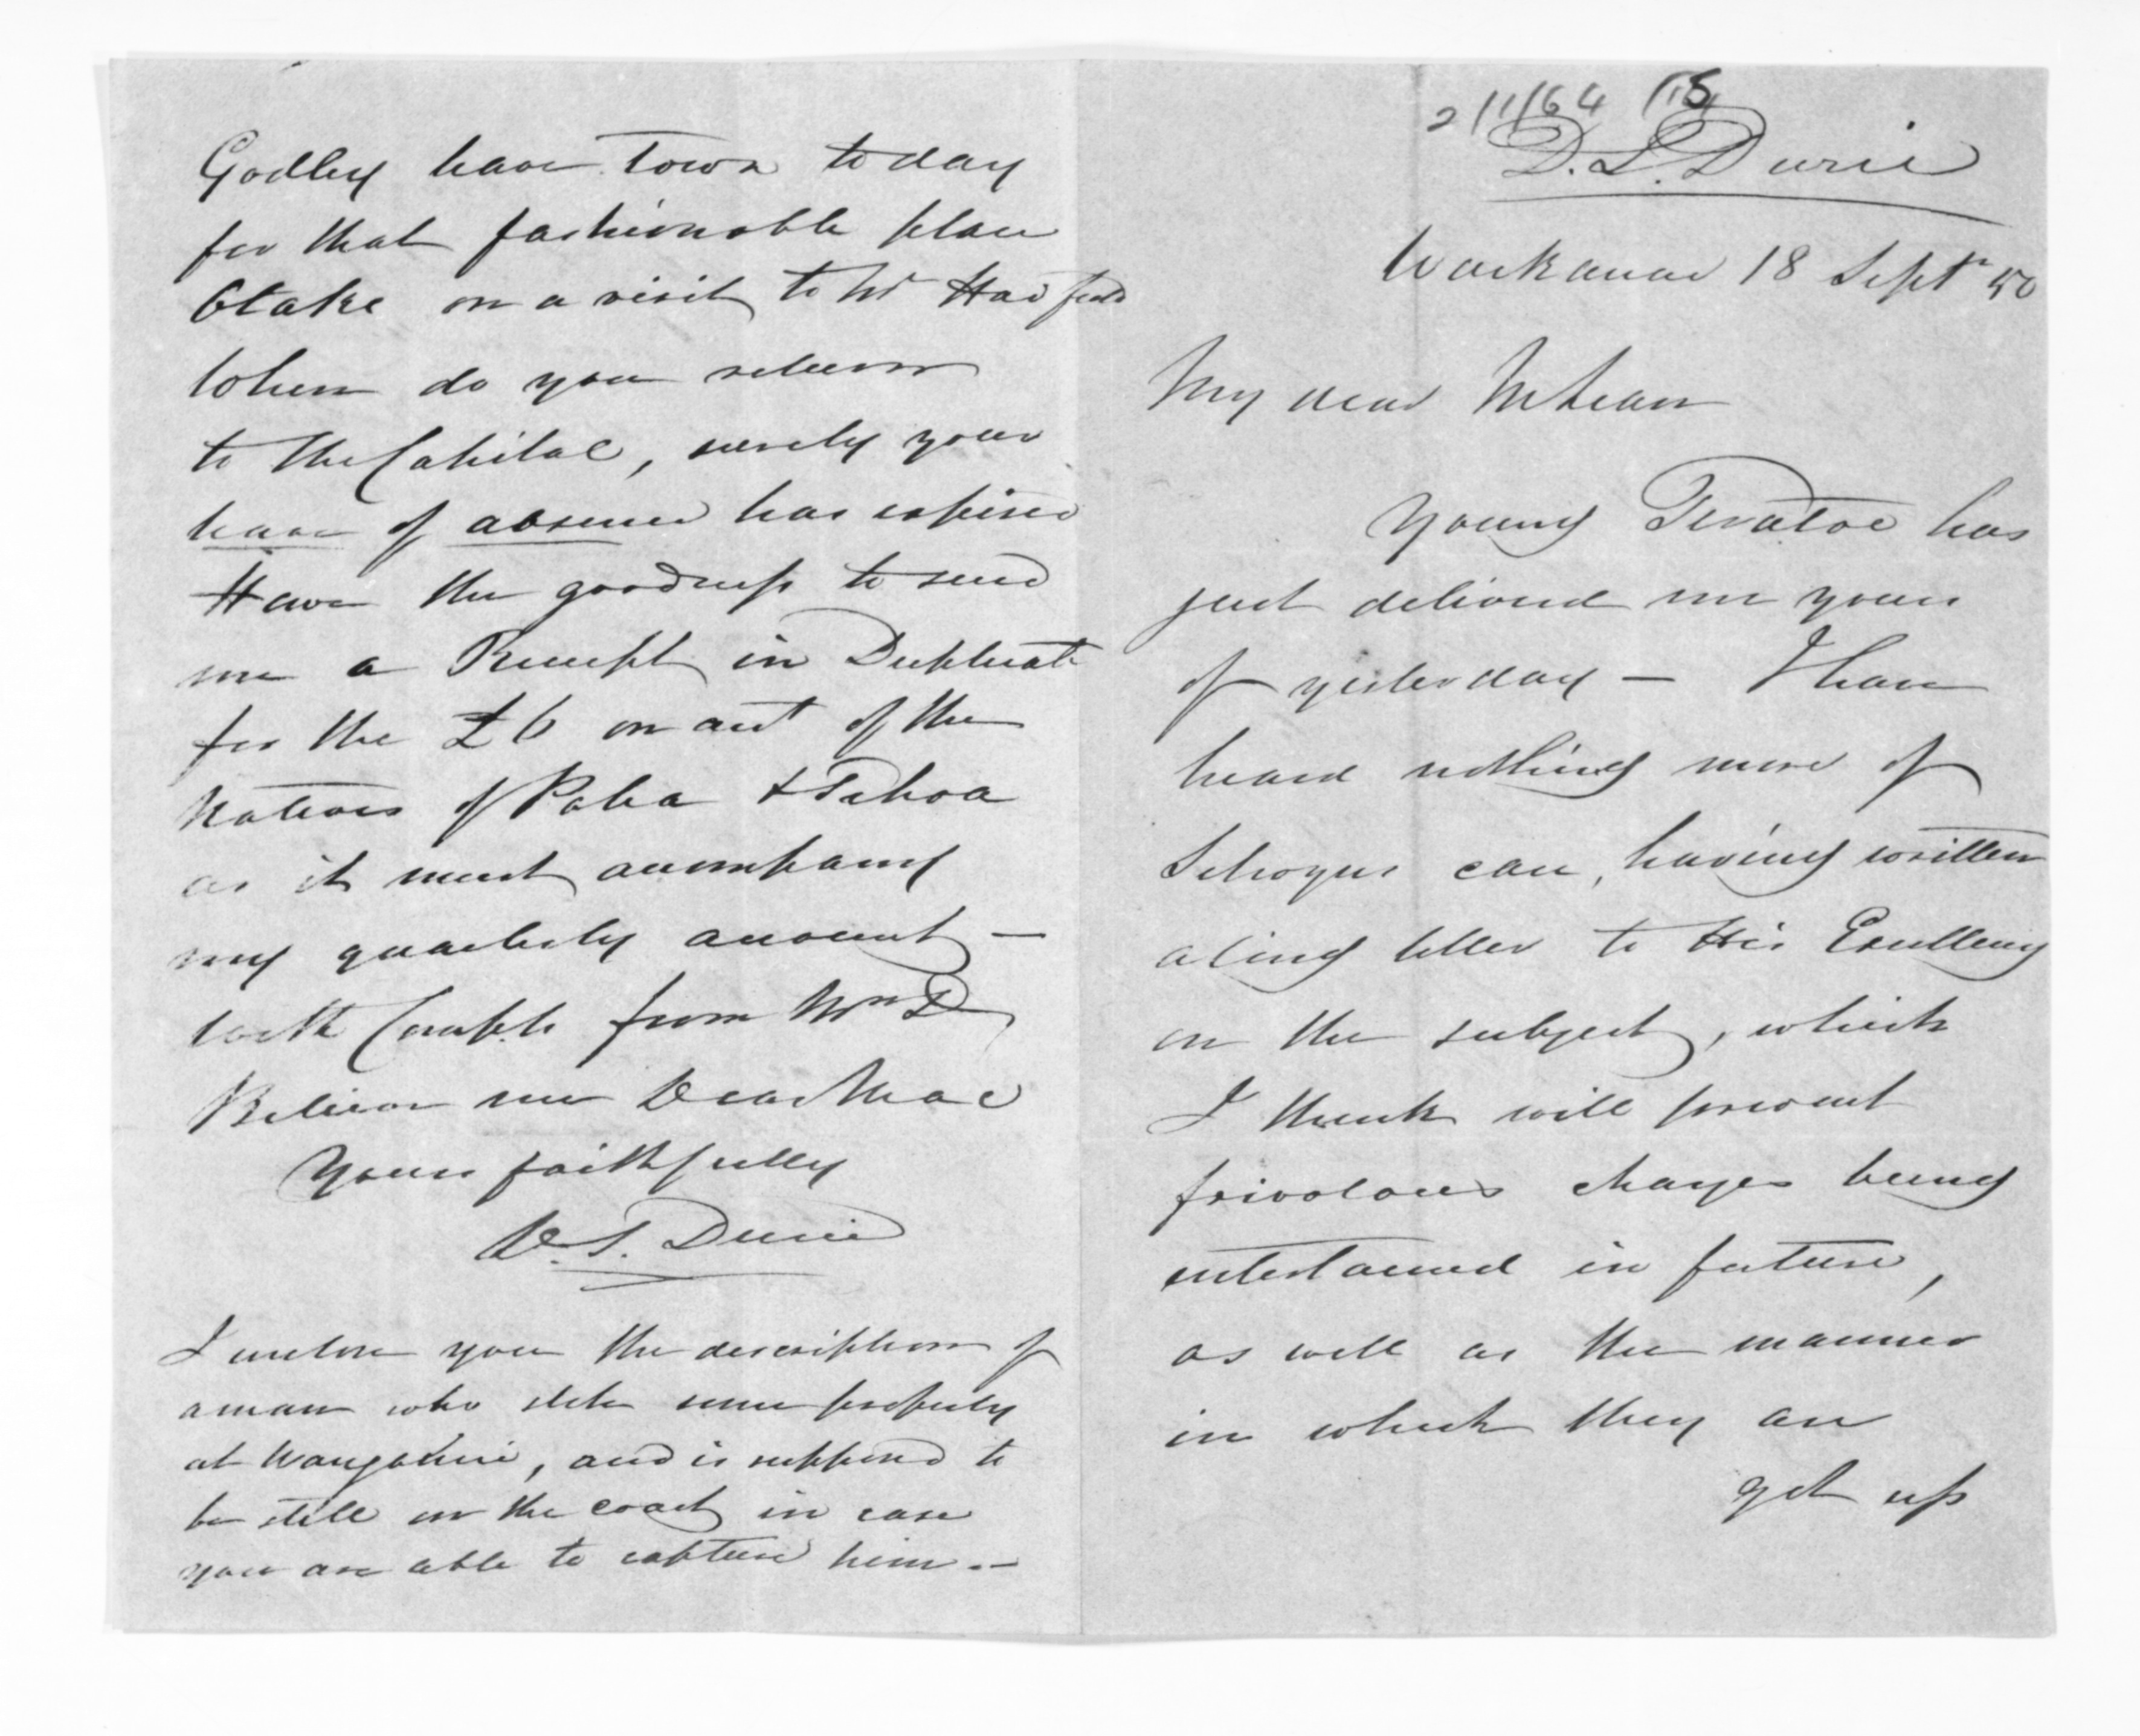 2/11/64 18
D. S. Durie
Waikanae 18 Sept. 50
My dear McLean
Young Teratoe has
just delivered me yours
of yesterday — I have
heard nothing more of
case, having written
a long letter to His Excellency
on the subject, which
I think will prevent
frivolous charges being
entertained in future,
as well as the manner
in which they are
got up
Godley leave Town today
for that fashionable place
Otake on a visit to Mr Hadfield
When do you return
to the Capital, surely your
leave of absence has expired
Have the goodness to send
me a Receipt in Duplicate
for the £6 on acct of the
Natives of Paka & Tehoa
as it must accompany
my quarterly account —
With Compts from Mrs D
Believe me Dear Mac
Yours faithfully
D. S. Durie
I enclose you the description of
a man who stole some property
at Wanganui, and is supposed to
be still on the coast in case
you are able to capture him. —